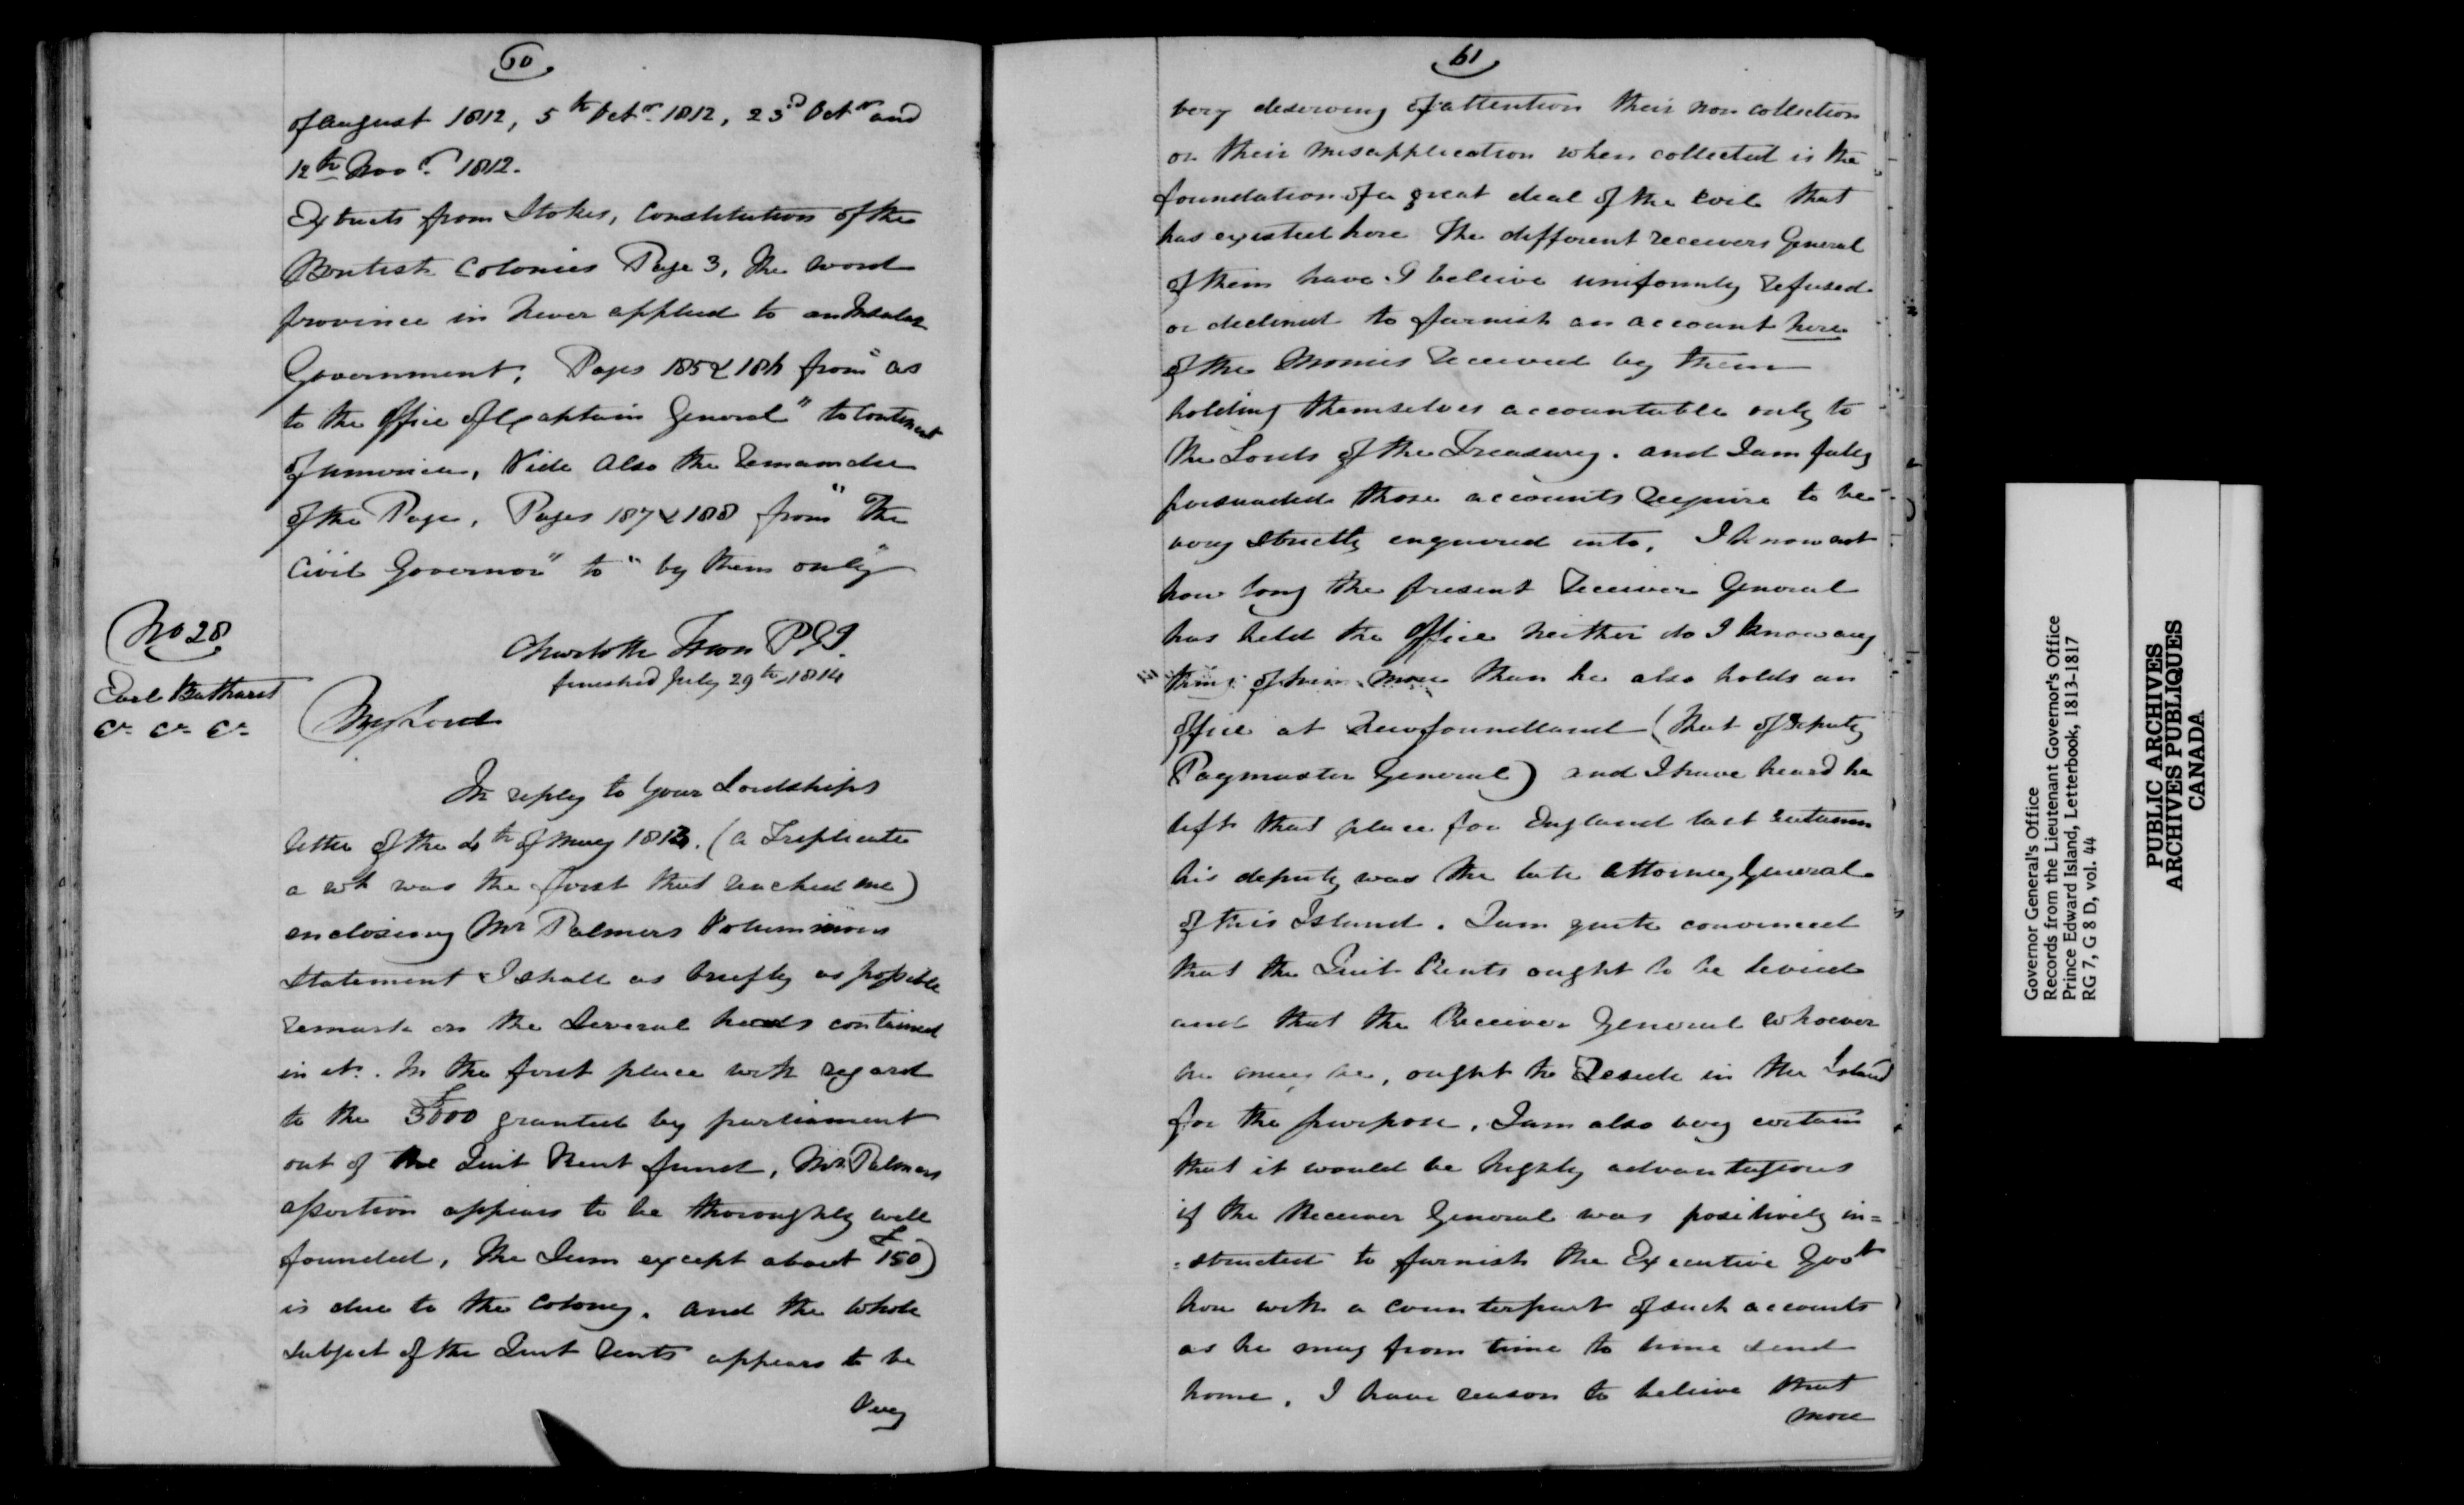 60
of August 1812, 5th Octr. 1812, 23d Octr and
12th Novr. 1812.
Extracts from Stokes, Constitution of the
British Colonies Page 3, The word
province in never applied to an Insular
Government, Pages 185 & 186 from "as
to the Office of Captain General" to Continent
of America, Vide Also the Remainder
of the Page, Pages 187 & 188 from "The
Civil Governor" to "by them only"
No 28
Charlotte Town P.E.I.
finished July 29th 1814
Earl Bathurst
&c &c &c
My Lord
In reply to Your Lordships
letter of the 4th of May 1813. (a Triplicate
a wh was the first that reached me)
enclosing Mr Palmers Voluminous
Statement I shall as briefly as possible
remark on the Several heads contained
in it. In the first place with regard
to the £3000 granted by parliament
out of the Quit Rent fund, Mr Palmers
assertion appears to be thoroughly well
founded, The Sum except about £150)
is due to the Colony. and the whole
subject of the Quit Rents appears to be
Very
61
very deserving of attention their non collection
or their misapplication when collected is the
foundation of a great deal of the evil that
has existed here The different receivers General
of them have I beleive uniformly refused
or declined to furnish an account here
of the Monies received by them
holding themselves accountable only to
the Lords of the Treasury. and I am fully
persuaded those accounts require to be
very strictly enquired into, I know not
how long the present Receiver General
has held the Office neither do I know any
thing of him more than he also holds an
Office at Newfoundland (that of Deputy
Paymaster General) and I have heard he
left that place for England last autumn
his deputy was the late Attorney General
of this Island. I am quite convinced
that the Quit Rents ought to be levied
and that the Receiver General whoever
he may be, ought to Reside in the Island
for the purpose, I am also very certain
that it would be highly advantageous
if the Receiver General was positively in=
=structed to furnish the Executive Govt
here with a counterpart of such accounts
as he may from time to time send
home. I have reason to believe that
more
Governor General's Office
Records from the Lieutenant Governor's Office
Prince Edward Island, Letterbook, 1813-1817
RG 7, G 8 D, vol. 44
PUBLIC ARCHIVES
ARCHIVES PUBLIQUES
CANADA